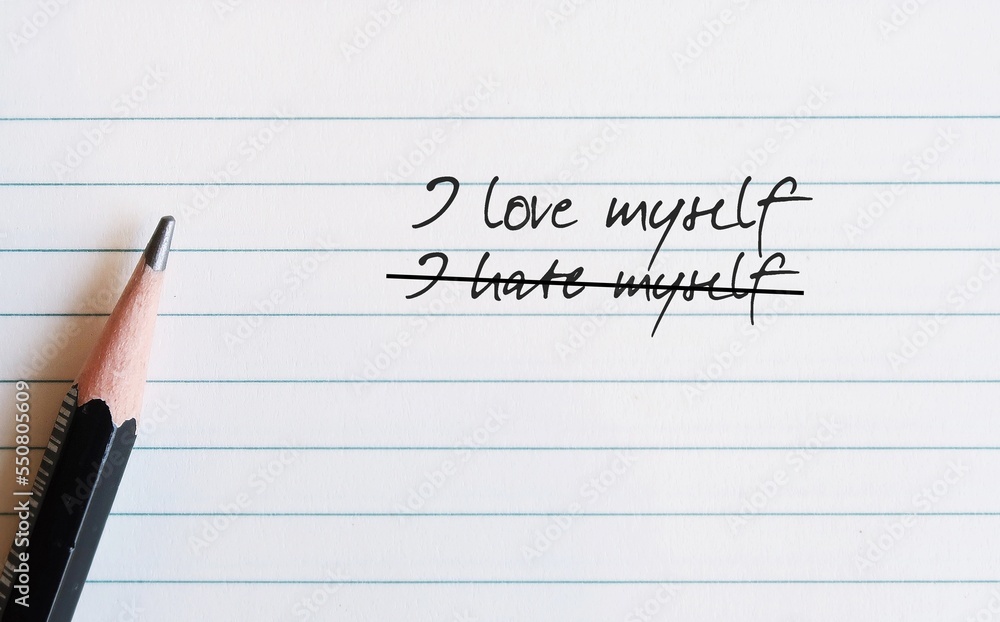 I love myself
I hate myself
Adobe Stock | #550805609